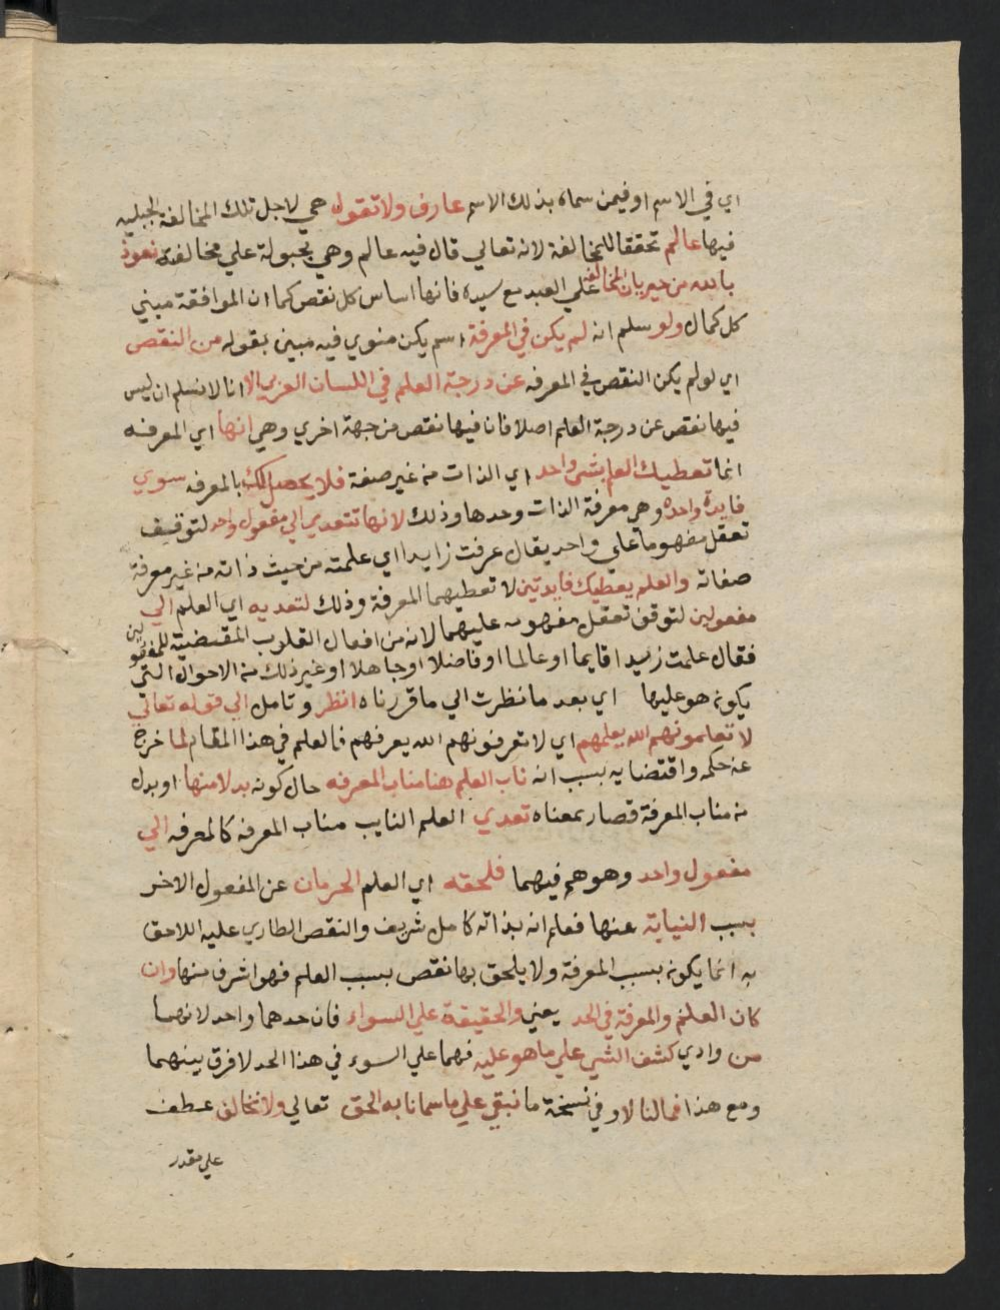 اي في الاسم او فيمن سماه بذلك الاسم عارف ولا تقول هي لاجل تلك المخالفة الجبليه
فيها عالم تحققا للمخالفة لانه تعالي قال فيه عالم وهي مجبولة علي مخالفته نعوذ
بالله من جريان المخالفة علي العبد مع سيده فانها اساس كل نقص كما ان الموافقة مبني
كل كمال ولو سلم انه لم يكن في المعرفة اسم يكن منوي فيه مبين بقوله من النقص
اي لو لم يكن النقص في المعرفه عن درجة العلم في اللسان العربي الا انا لا نسلم ان ليس
فيها نقص عن درجة العلم اصلا فان فيها نقص من جهة اخري وهي انها اي المعرفه
انما تعطيك العلم بشي واحد اي الذات من غير صفة فلا يحصل لك بالمعرفه سوي
فايدة واحده وهي معرفة الذات وحدها وذلك لانها تتعدي الي مفعول واحد لتوقف
تعقل مفهومها علي واحد يقال عرفت زايدا اي علمته من حيث ذاته من غير معرفة
صفاته والعلم يعطيك فايدتين لا تعطيهما المعرفة وذلك لتعديه اي العلم الي
مفعولين لتوقف تعقل مفهومه عليهما لانه من افعال القلوب المقتضية للمفعولين
فقال علمت زيدا قايما او عالما او فاضلا او جاهلا او غير ذلك من الاحوال التي
يكون هو عليها اي بعد ما نظرت الي ما قررناه انظر وتامل الي قوله تعالي
لا تعلمونهم الله يعلمهم اي لا تعرفونهم الله يعرفهم فالعلم في هذا المقام لما خرج
عن حكمه واقتضايه بسبب انه ناب العلم هنا مناب المعرفه حال كونه بدلا منها او بدل
من مناب المعرفة فصار بمعناه تعدي العلم النايب مناب المعرفه كالمعرفه الي
مفعول واحد وهو هم فيهما فلحقه اي العلم الحرمان عن المفعول الاخر
بسبب النيابة عنها فعلم انه بذاته كامل شريف والنقص الطاري عليه اللاحق
به انما يكون بسبب المعرفة ولا يلحق بها نقص بسبب العلم فهو اشرف منها وان
كان العلم والمعرفة في الحد يعني والحقيقة علي السواء فان حدهما واحد لانهما
من وادي كشف الشي علي ما هو عليه فهما علي السوء في هذا الحد لا فرق بينهما
ومع هذا فما لنا لا وفي نسخة ما نبقي علي ما سمانا به الحق تعالي ولا نخالف عطف
علي مقدر